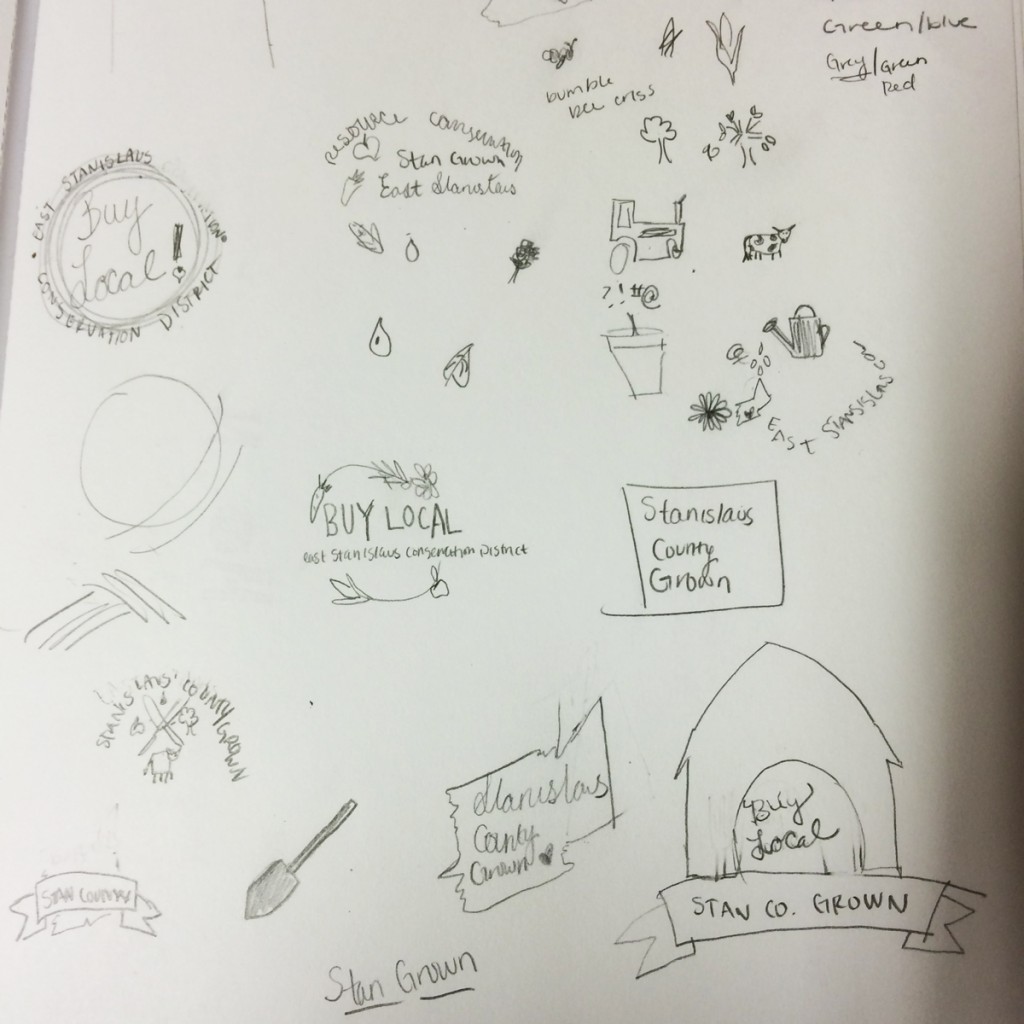 Green/blue
Grey/Green
Red
bumble
bee criss
resource conservation
Stan Grown
East Stanislaus
EAST STANISLAUS
Buy
Local!
CONSERVATION DISTRICT
?!#@
EAST STANSISLAUS
BUY LOCAL
east Stanislaus Conservation District
Stanislaus
County
Grown
STANISLAUS COUNTY GROWN
Stanislaus
County
Grown
Buy
Local
STAN COUNTY
STAN CO. GROWN
Stan Grown